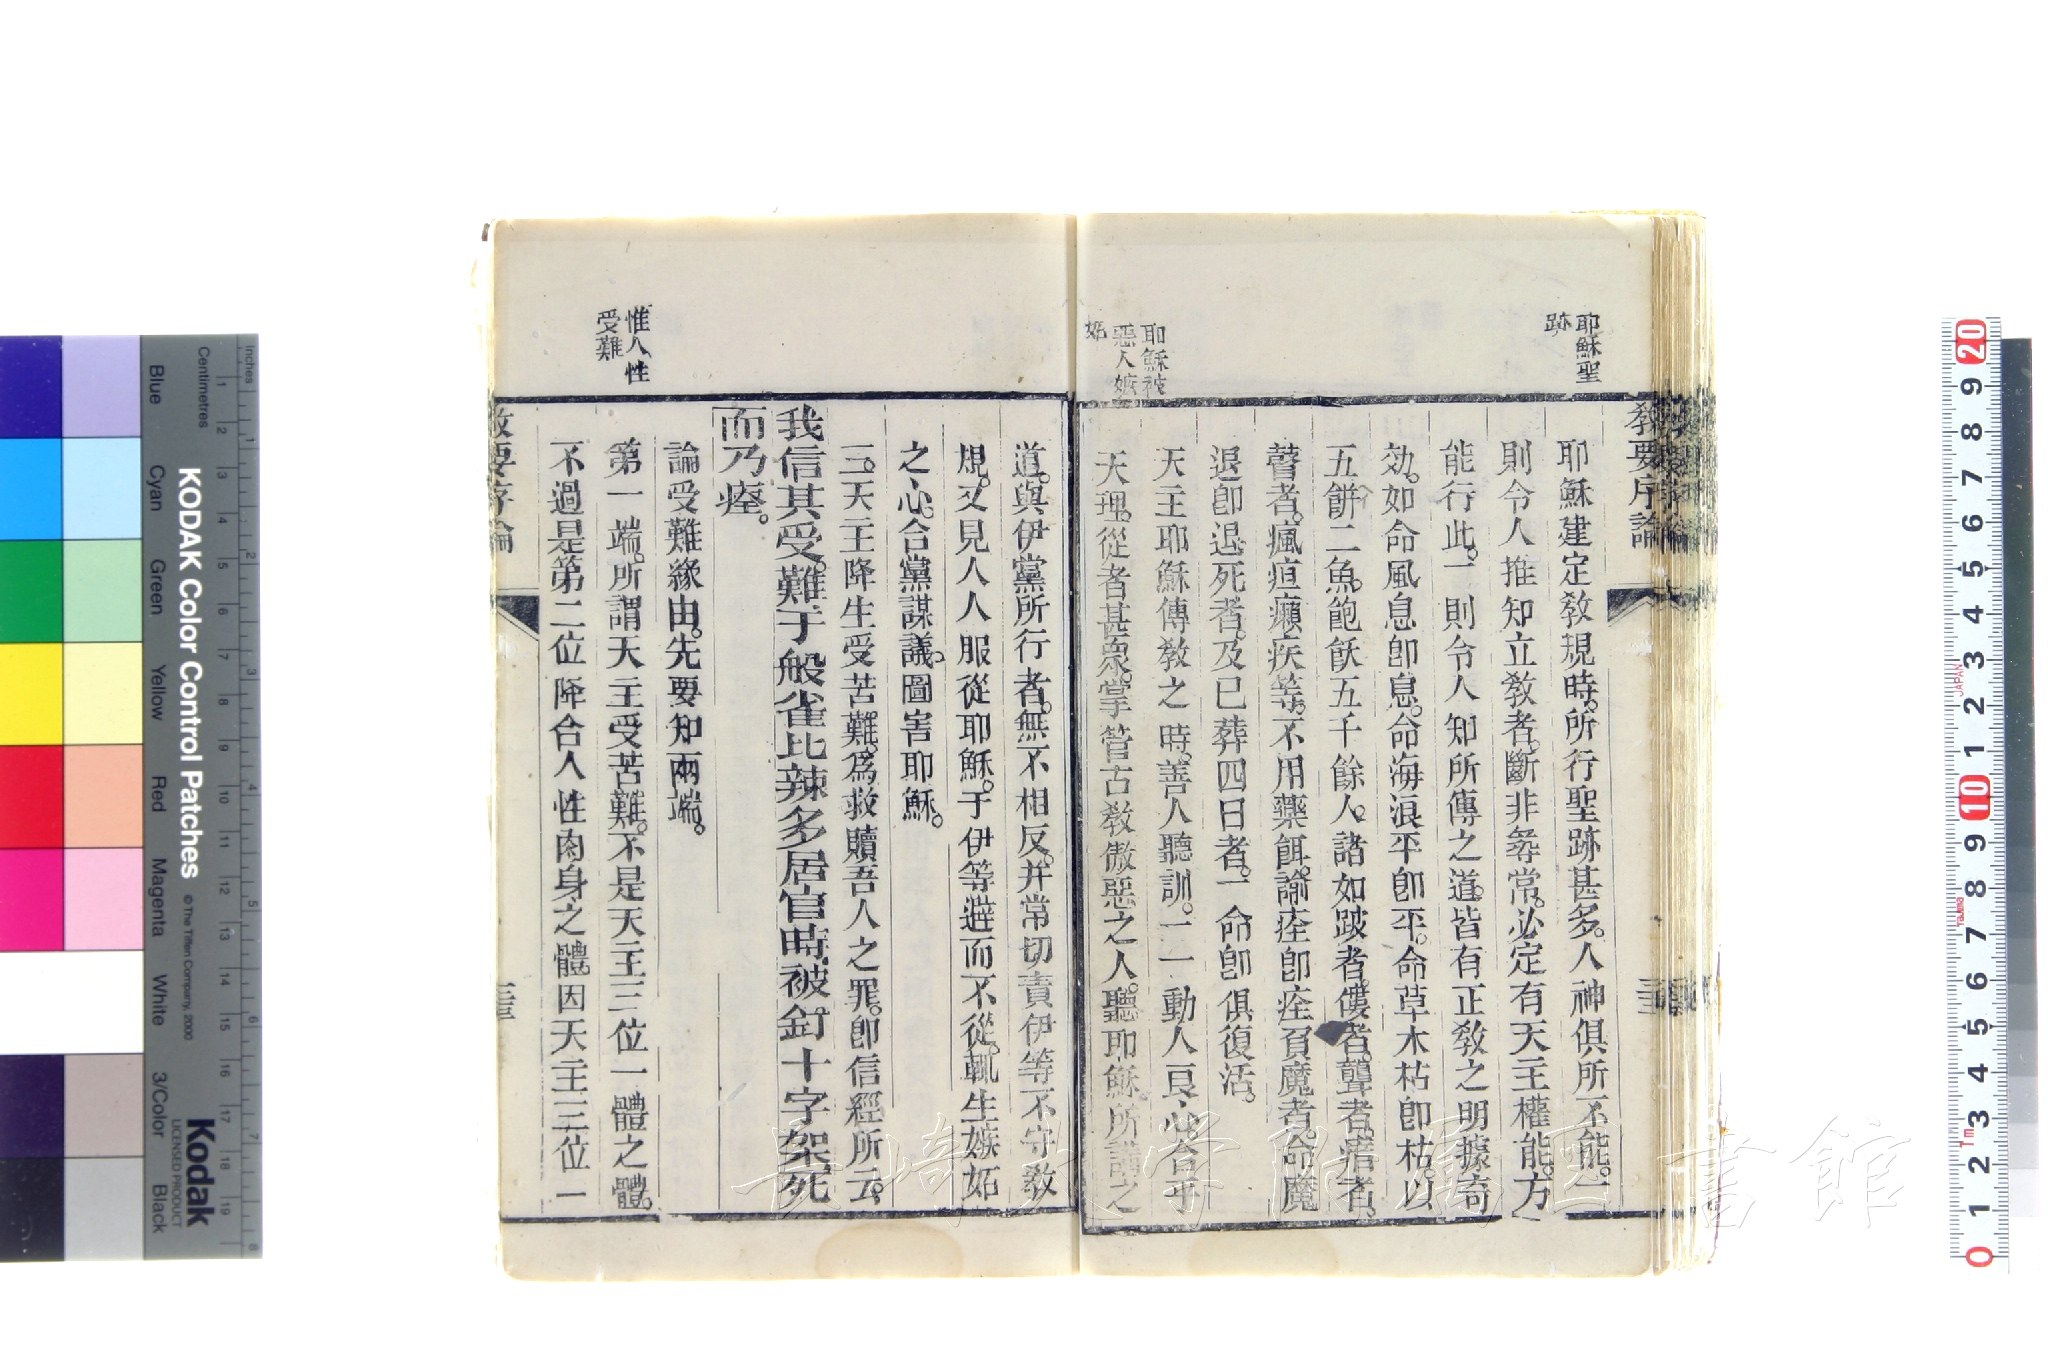 耶穌聖
跡
教要序論
耶穌建定教規時。所行聖跡甚多。人神俱所不能。一
則令人推知立教者。斷非尋常。必定有天主權能。方
能行此。一則令人知所傳之道。皆有正教之明據奇
効。如命風息卽息。命海浪平卽平。命草木枯卽枯。以
五餅二魚。飽飫五千餘人。諸如跛者。僂者。聾者。瘖者。
瞽者。瘋疸癩疾等。不用藥餌。諭痊卽痊。負魔者。命魔
退卽退。死者。及已葬四日者。一命卽俱復活。
耶穌被
惡人嫉
妬
天主耶穌傳教之時。善人聽訓。一一動人良心。合乎
天理。從者甚衆。掌管古教傲惡之人。聽耶穌。所講之
道。與伊黨所行者。無不相反。幷常切責伊等不守教
規。又見人人服從耶穌。于伊等避而不從。輒生嫉妬
之心。合黨謀議。圖害耶穌。
三。天主降生受苦難。爲救贖吾人之罪。卽信經所云。
我信其受難。于般雀比辣多居官時。被釘十字架。死
而乃瘞。
惟人性
受難
論受難緣由。先要知兩端。
第一端。所謂天主受苦難。不是天主三位一體之體。
不過是第二位降合人性肉身之體。因天主三位一
教要序論
KODAK Color Control Patches
© The Tiffen Company, 2000
Kodak
LICENSED PRODUCT
Inches
Centimetres
Blue
Cyan
Green
Yellow
Red
Magenta
White
3/Color
Black
長崎大学附属図書館